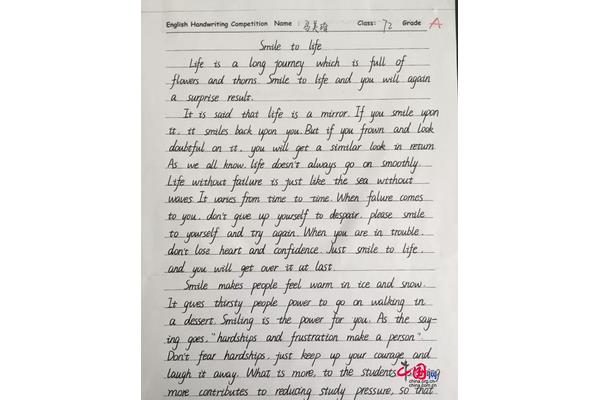 English Handwriting Competition Name: 马美瑜 Class: 72 Grade A
Smile to life
Life is a long journey which is full of
flowers and thorns. Smile to life and you will again
a surprise result.
It is said that life is a mirror. If you smile upon
it, it smiles back upon you. But if you frown and look
doubtful on it, you will get a similar look in return.
As we all know, life doesn't always go on smoothly.
Life without failure is just like the sea without
waves. It varies from time to time. When falure comes
to you, don't give up yourself to despair, please smile
to yourself and try again. When you are in trouble,
don't lose heart and confidence. Just smile to life,
and you will get over it at last.
Smile makes people feel warm in ice and snow.
It gives thirsty people power to go on walking in
a dessert. Smiling is the power for you. As the say-
ing goes, "hardships and frustration make a person".
Don't fear hardships, just keep up your courage and
laugh it away. What is more, to the students
more contributes to reducing study pressure, so that
中国网
china.org.cn
china.com.cn